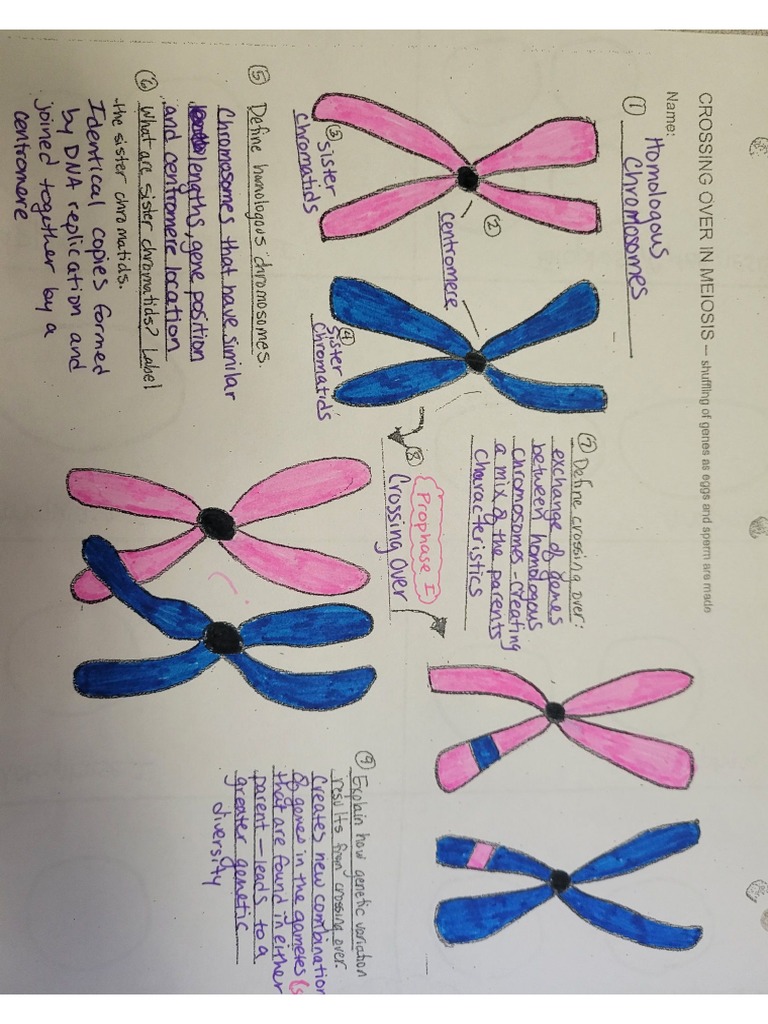 CROSSING OVER IN MEIOSIS – shuffling of genes as eggs and sperm are made
Name:
① Homologous
Chromosomes
②
centromere
③ Sister
Chromatids
④ Sister
Chromatids
⑤ Define homologous chromosomes.
Chromosomes that have similar
lengths, gene position
and centromere location
⑥ What are sister chromatids? Label
the sister chromatids.
Identical copies formed
by DNA replication and
joined together by a
centromere
⑦ Define crossing over:
exchange of genes
between homologous
chromosomes - creating
a mix of the parents
characteristics
Prophase I
⑧ Crossing Over
⑨ Explain how genetic variation
results from crossing over.
Creates new combination
of genes in the gametes (s
that are found in either
parent – leads to a
greater genetic
diversity